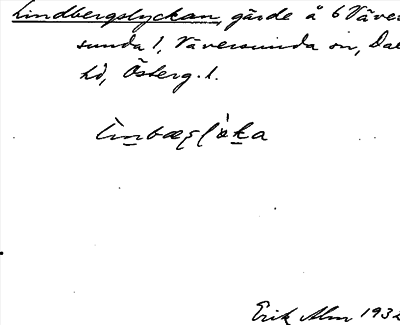 Lindbergslyckan, gärde å 6 Väver
sunda 1, Väversunda sn, Dal
hd, Österg. l.
Erik Alm 1932